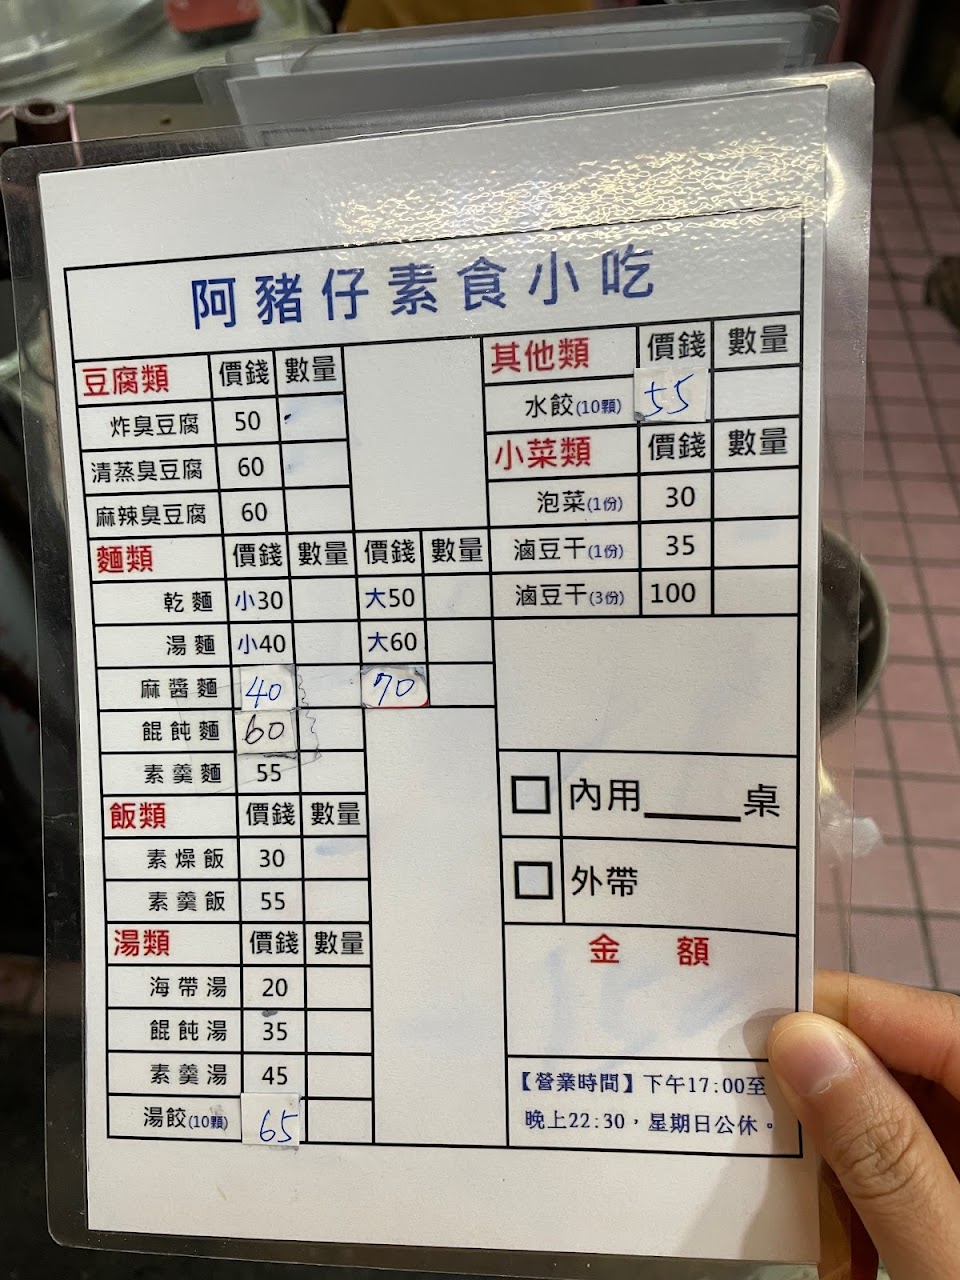 阿豬仔素食小吃
豆腐類 價錢 數量
炸臭豆腐 50
清蒸臭豆腐 60
麻辣臭豆腐 60
麵類 價錢 數量 價錢 數量
乾麵 小30 大50
湯麵 小40 大60
麻醬麵 40 70
餛飩麵 60
素羹麵 55
飯類 價錢 數量
素燥飯 30
素羹飯 55
湯類 價錢 數量
海帶湯 20
餛飩湯 35
素羹湯 45
湯餃(10顆) 65
其他類 價錢 數量
水餃(10顆) 55
小菜類 價錢 數量
泡菜(1份) 30
滷豆干(1份) 35
滷豆干(3份) 100
內用____桌
外帶
金額
【營業時間】下午17:00至
晚上22:30，星期日公休。